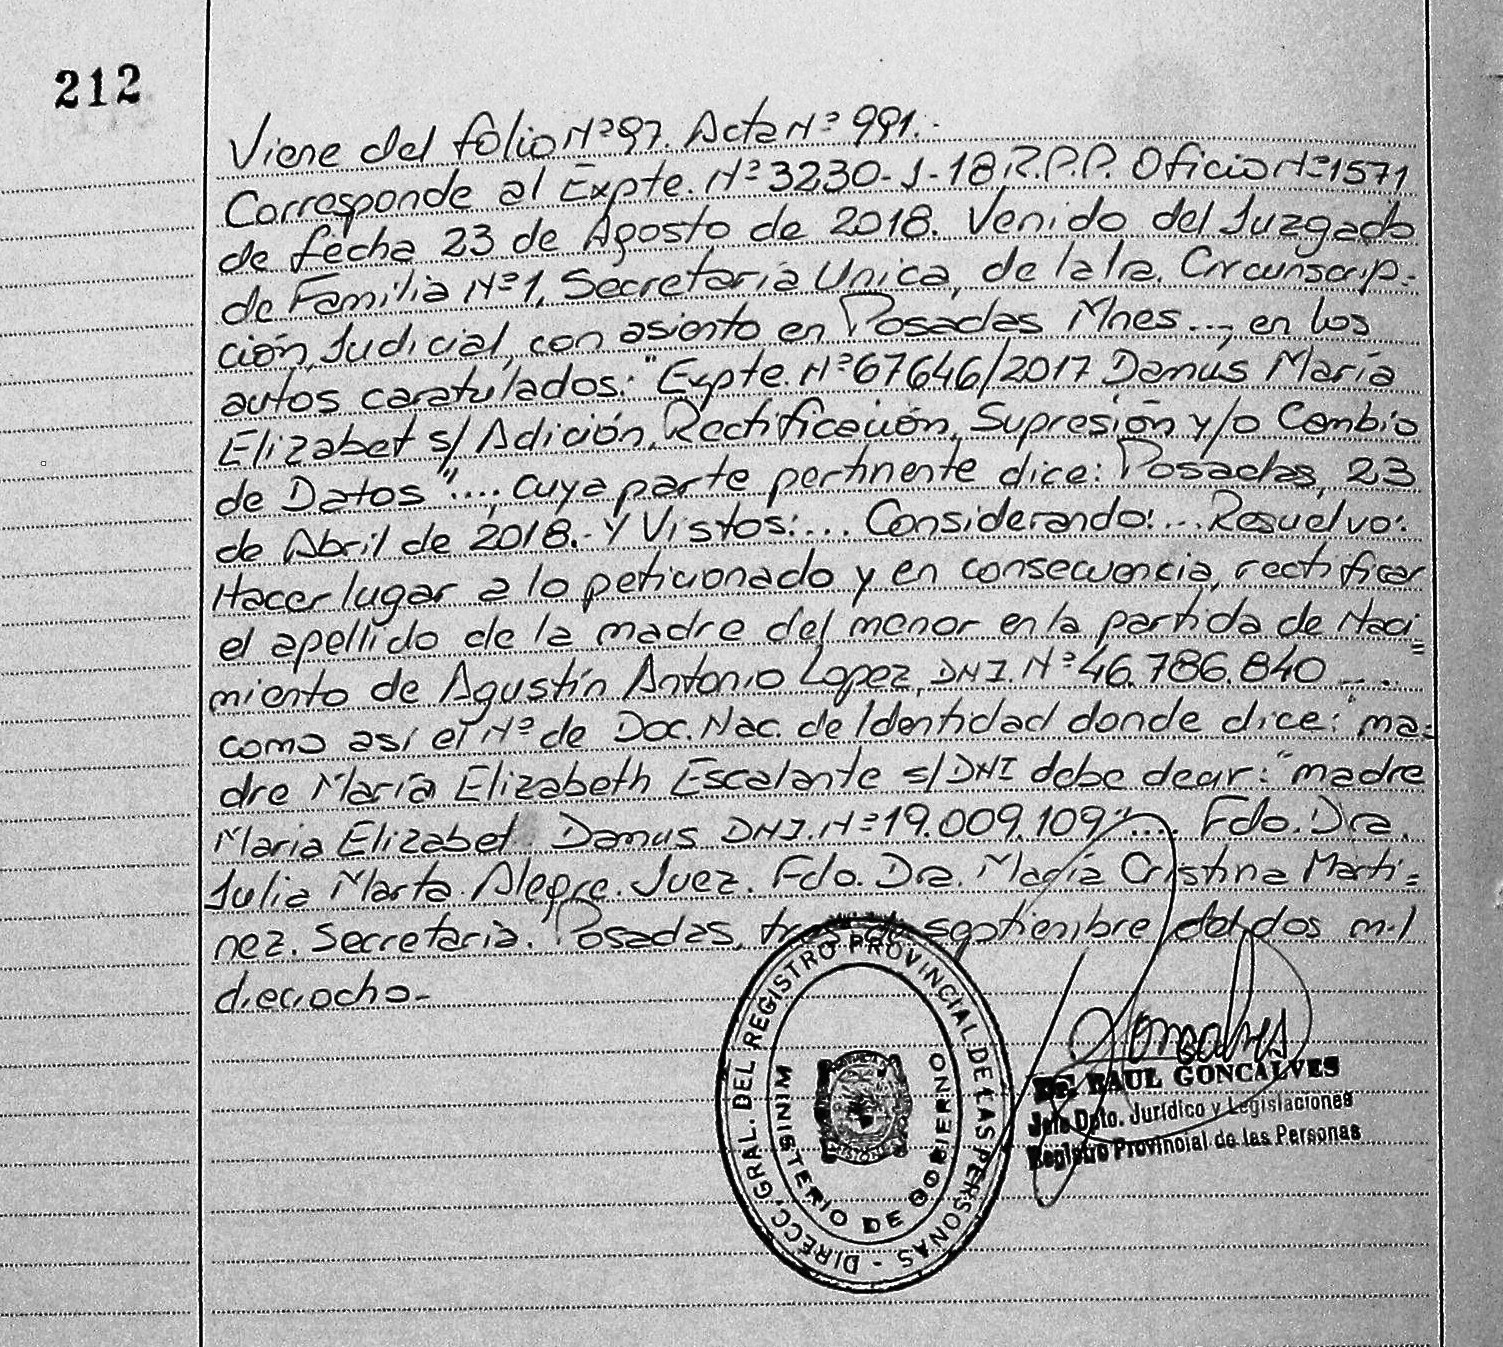 212
Viene del folio Nº 97. Acta Nº 991.-
Corresponde al Expte. Nº 3230-J-18 R.P.P. Oficio Nº 1571
de fecha 23 de Agosto de 2018. Venido del Juzgado
de Familia Nº 1, Secretaría Unica, de la 1ra. Circunscrip=
ción, Judicial, con asiento en Posadas Mnes..., en los
autos caratulados: "Expte. Nº 67646/2017 Danus María
Elizabet s/ Adición, Rectificación, Supresión y/o Cambio
de Datos"...., cuya parte pertinente dice: Posadas, 23
de Abril de 2018.- Y Vistos:... Considerando:... Resuelvo:
Hacer lugar a lo peticionado y en consecuencia, rectificar
el apellido de la madre del menor en la partida de Naci=
miento de Agustín Antonio Lopez, DNI. Nº 46.786.840 ....
como así el Nº de Doc. Nac. de Identidad donde dice: "ma=
dre María Elizabeth Escalante s/DNI debe decir: "madre
Maria Elizabet Danus DNI. Nº 19.009.109".... Fdo. Dra.
Julia Marta Alegre. Juez. Fdo. Dra. María Cristina Marti=
nez. Secretaria. Posadas, tres de septiembre del dos mil
dieciocho-
DIRECC. GRAL. DEL REGISTRO PROVINCIAL DE LAS PERSONAS -
MINISTERIO DE GOBIERNO
MISIONES
Goncalves
Dr. RAUL GONCALVES
Jefe Dpto. Jurídico y Legislaciones
Registro Provincial de las Personas